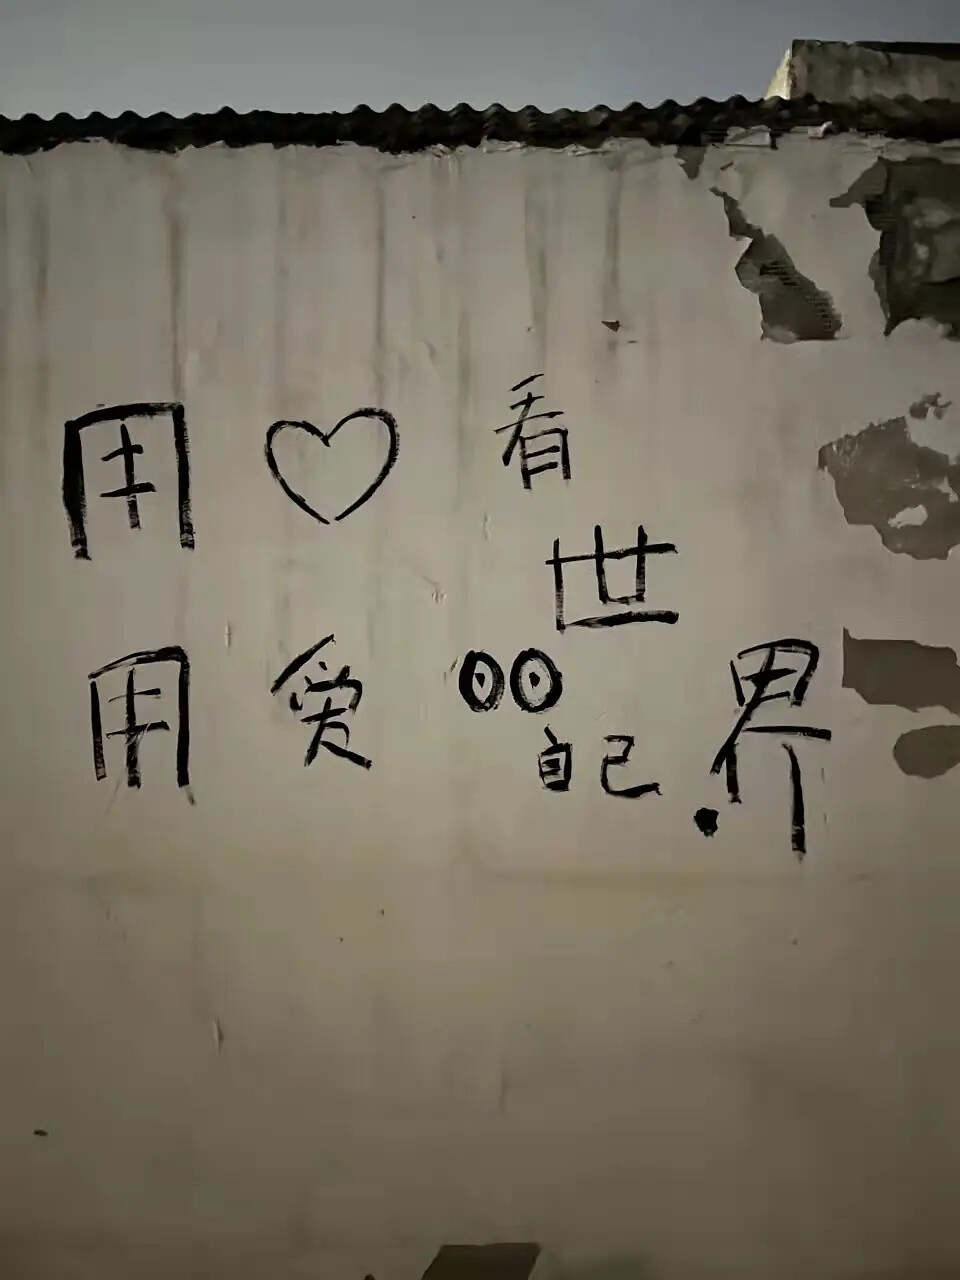 用♡看
世
用爱👀界
自己.